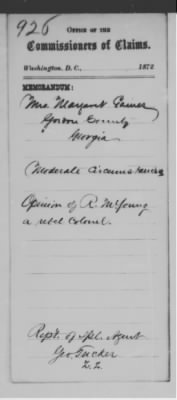 926
OFFICE OF THE
Commissioners of Claims.
Washington, D. C., 1872
MEMORANDUM:
Mrs. Margaret
Gordon County
Georgia
Moderate Circumstances
Opinion of R. M. Young
a rebel Colonel.
Rept. of Spl. Agent
Geo. Tucker